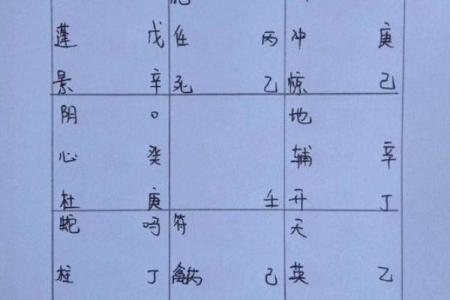 蓬 戊 任 丙 冲 庚
景 辛 死 乙 惊 己
阴 ○ 地
心 癸 辅 辛
杜 庚 壬 开 丁
蛇 吗 符 天
柱 丁 禽 己 英 乙